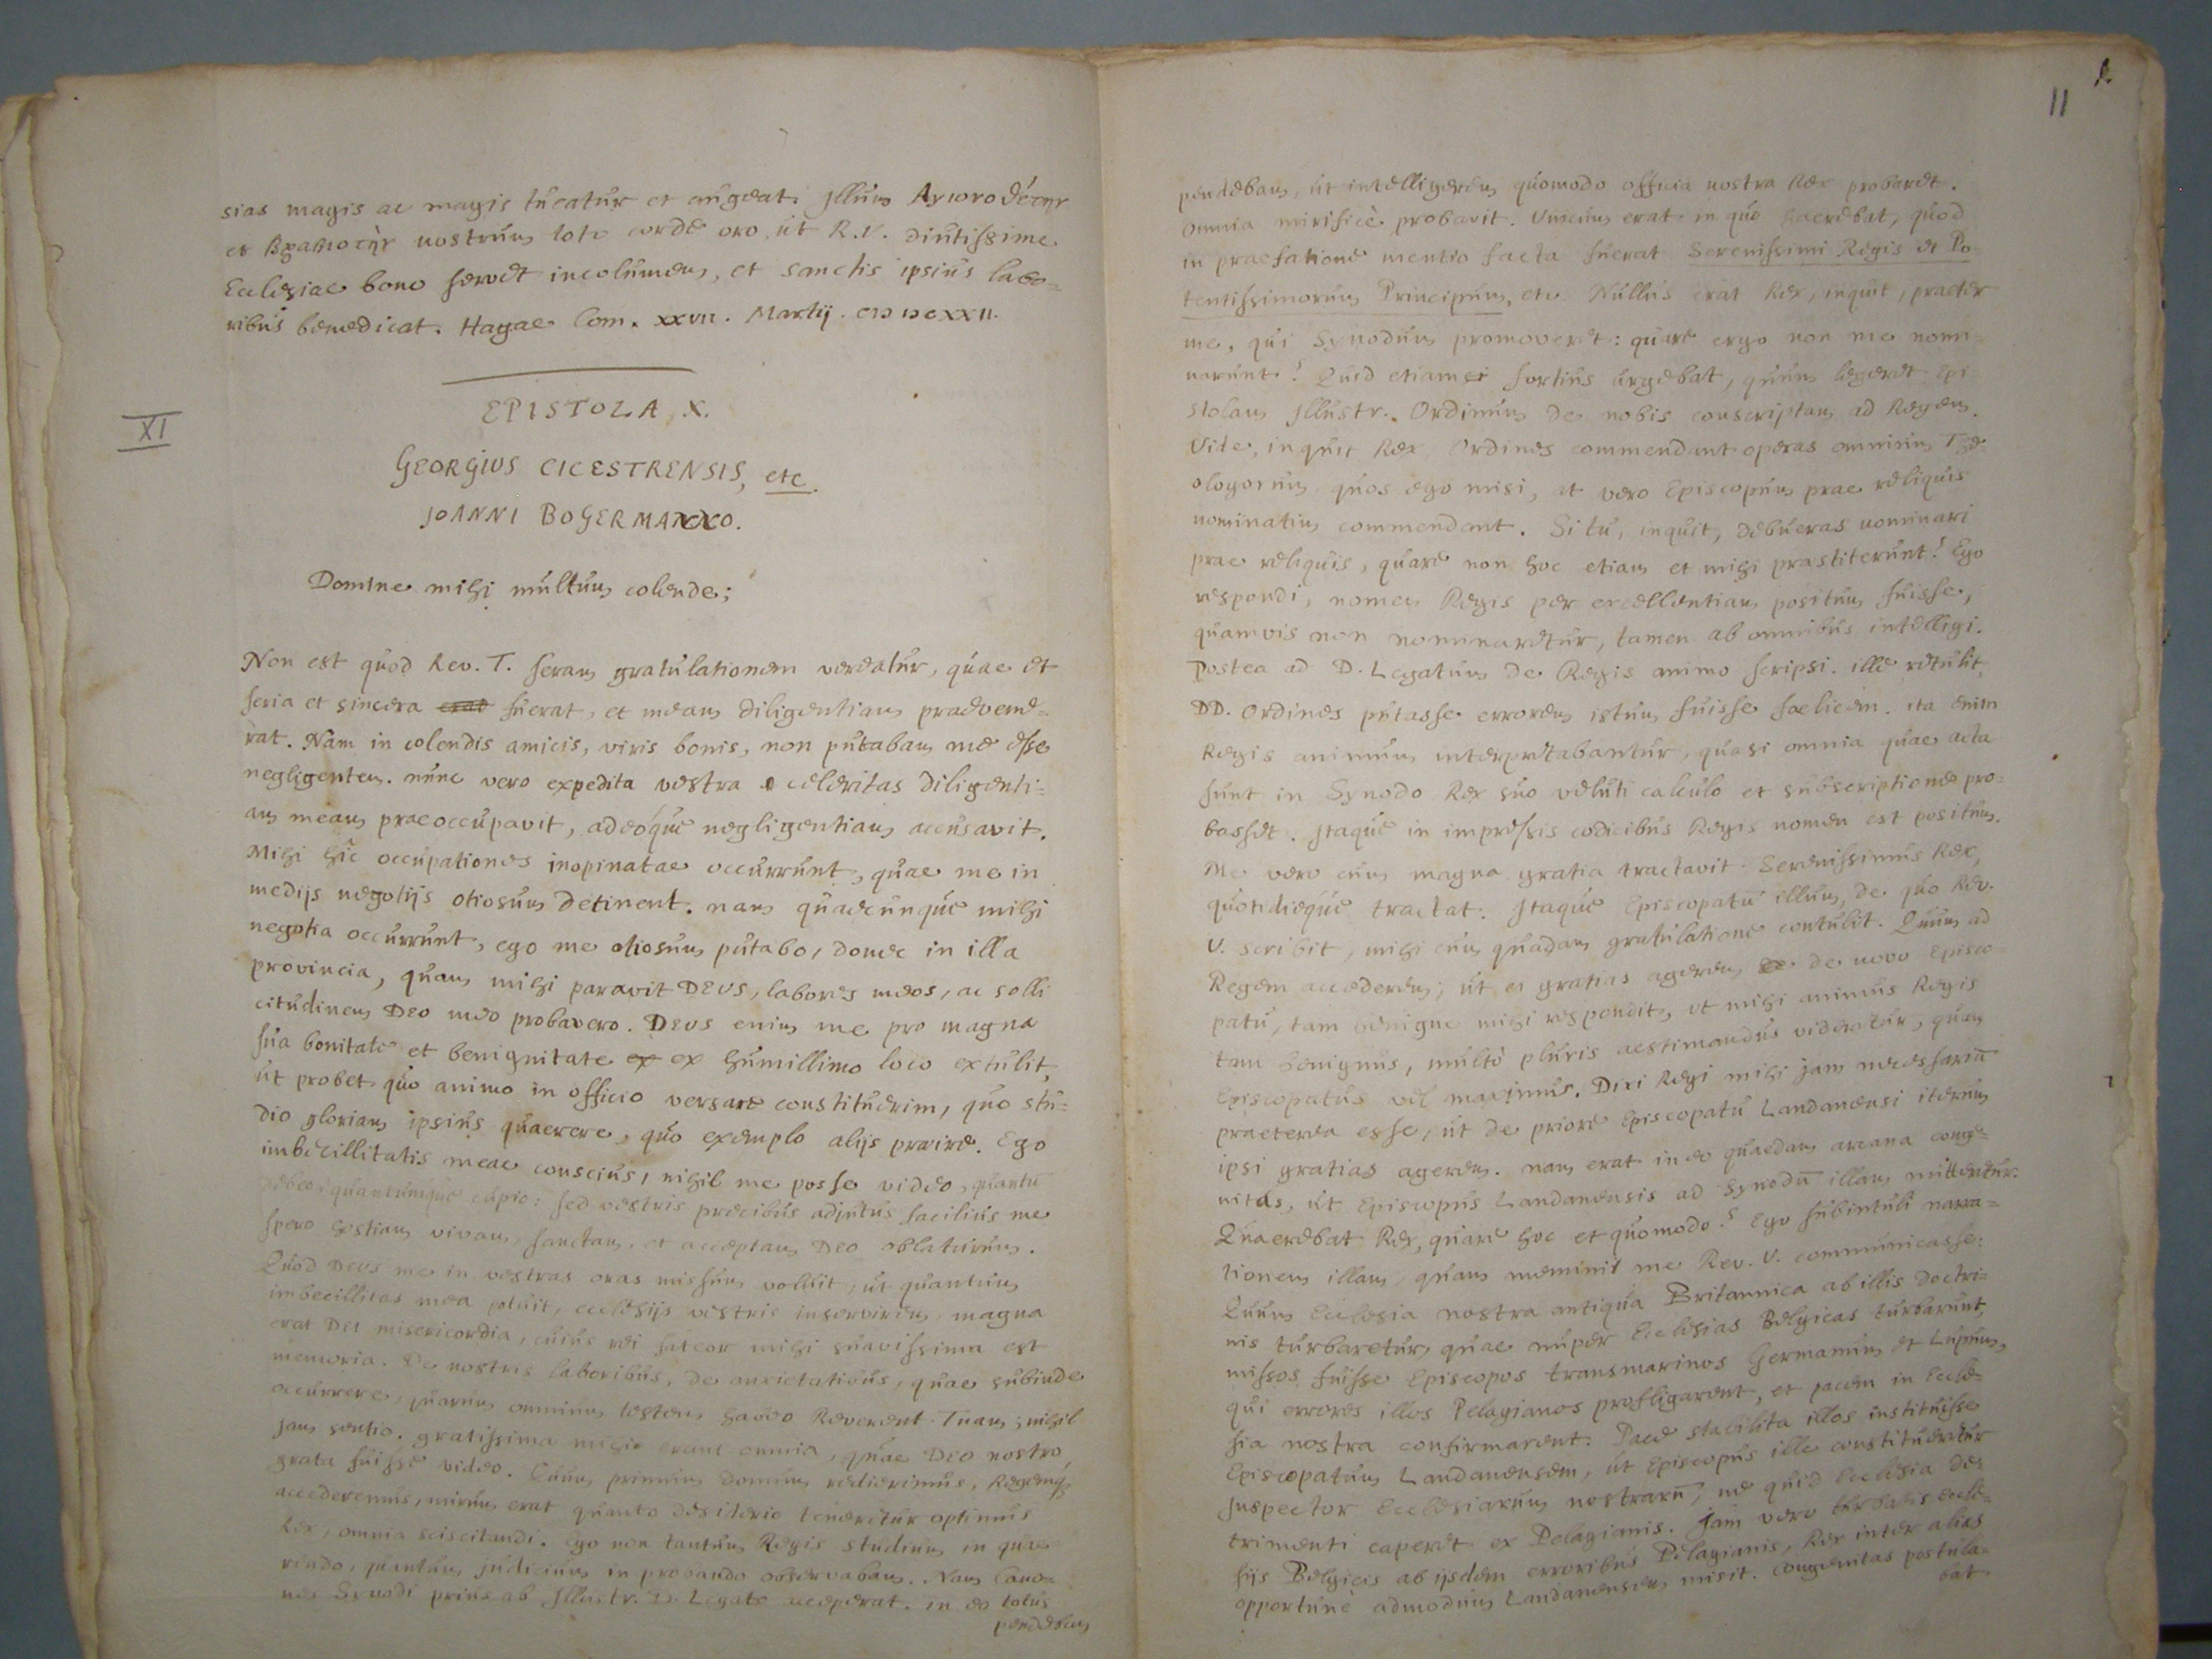 sias magis ac magis tueatur et augeat. Illum Ἀγωνοθέτην
et Βραβευτὴν nostrum toto corde oro, ut R. V. diutissime
Ecclesiae bono servet incolumem, et sanctis ipsius labo=
ribus benedicat. Hagae Com. XXVII. Martij. CIↃ IↃ CXXII.
XI
EPISTOLA X.
GEORGIUS CICESTRENSIS, etc.
JOANNI BOGERMANNO.
Domine mihi multum colende;
Non est quod Rev. T. seram gratulationem vereatur, quae et
seria et sincera erat fuerat, et meam diligentiam praevene=
rat. Nam in colendis amicis, viris bonis, non putabam me esse
negligentem. nunc vero expedita vestra celeritas diligenti=
am meam praeoccupavit, adeoque negligentiam accusavit.
Mihi hîc occupationes inopinatae occurrunt, quae me in
medijs negotijs otiosum detinent. nam quaecunque mihi
negotia occurrunt, ego me otiosum putabo, donec in illa
provincia, quam mihi paravit DEUS, labores meos, ac solli
citudinem Deo meo probavero. DEUS enim me pro magna
sua bonitate et benignitate ex ex humillimo loco extulit,
ut probet quo animo in officio versare constituerim, quo stu=
dio gloriam ipsius quaerere, quo exemplo alijs praeire. Ego
imbecillitatis meae conscius, nihil me posse video, quantu
debeo, quantumque cupio: sed vestris precibus adjutus facilius me
spero hostiam vivam, sanctam, et acceptam DEO oblaturum.
Quod DEUS me in vestras oras missum voluit, ut quantum
imbecillitas mea potuit, ecclesijs vestris inservirem, magna
erat DEI misericordia, cuius rei fateor mihi suavissima est
memoria. De nostris laboribus, de anxietatibus, quae subinde
occurrere, quarum omnium testem habeo Reverent. Tuam; nihil
jam sentio. gratissima mihi erant omnia, quae DEO nostro
grata fuisse video. Quum primum domum redierimus, Regemq;
accederemus, mirum erat quanto desiderio teneretur optimus
Rex, omnia sciscitandi. Ego non tantum Regis studium in quae
rendo, quantum judicium in probando observabam. Nam Cano=
nes Synodi prius ab Illustr. D. Legato acceperat. in eo totus
pendebam
11
pendebam, ut intelligerem quomodo officia nostra Rex probaret.
Omnia mirificè probavit. Unicum erat in quo haerebat, quod
in praefatione mentio facta fuerat Serenissimi Regis et Po
tentissimorum Principum, etc. Nullus erat Rex, inquit, praeter
me, qui Synodum promoveret: quare ergo non me nomi
narunt? Quod etiamsi fortius urgebat, quum legeret Epi
stolam Illustr. Ordinum de nobis conscriptam ad Regem.
Vide, inquit Rex, Ordines commendant operas omnium The
ologorum quos ego misi, at vero Episcopum prae reliquis
nominatim commendant. Si tu, inquit, debueras nominari
prae reliquis, quare non hoc etiam et mihi praestiterunt? Ego
respondi, nomen Regis per excellentiam positum fuisse,
quamvis non nominaretur, tamen ab omnibus intelligi.
Postea ad D. Legatum de Regis animo scripsi. ille retulit,
DD. Ordines putasse errorem istum fuisse foelicem. ita enim
Regis animum interpretabantur, quasi omnia quae acta
sunt in Synodo Rex suo veluti calculo et subscriptione pro=
basset. Itaque in impressis codicibus Regis nomen est positum.
Me vero cum magna gratia tractavit Serenissimus Rex,
quotidieque tractat. Itaque Episcopatū illum, de quo Rev.
V. scribit, mihi cum quadam gratulatione contulit. Quum ad
Regem accederem, ut ei gratias agerem de de novo Episco=
patu, tam benigne mihi respondit, ut mihi animus Regis
tam benignus, multò pluris aestimandus videretur, quam
Episcopatus vel maximus. Dixi Regi mihi jam necessariū
praeterea esse, ut de priore Episcopatu Landavensi iterum
ipsi gratias agerem. nam erat in eo quaedam arcana conge=
nitas, ut Episcopus Landavensis ad Synodū illam mitteretur.
Quaerebat Rex, quare hoc et quomodo? Ego subintuli narra=
tionem illam, quam memini me Rev. V. communicasse:
Quum Ecclesia nostra antiqua Britannica ab illis doctri=
nis turbaretur, quae nuper Ecclesias Belgicas turbarunt,
missos fuisse Episcopos transmarinos Germanum et Lupum,
qui errores illos Pelagianos profligarent, et pacem in Eccle=
sia nostra confirmarent. Pace stabilita illos instituisse
Episcopatum Landavensem, ut Episcopus ille constitueretur
Inspector Ecclesiarum nostrarū, ne quid Ecclesia de=
trimenti caperet ex Pelagianis. Jam vero turbatis Eccle=
sijs Belgicis ab ijsdem erroribus Pelagianis, Rex inter alios
opportunè admodum Landavensem misit. congenitas postula=
bat